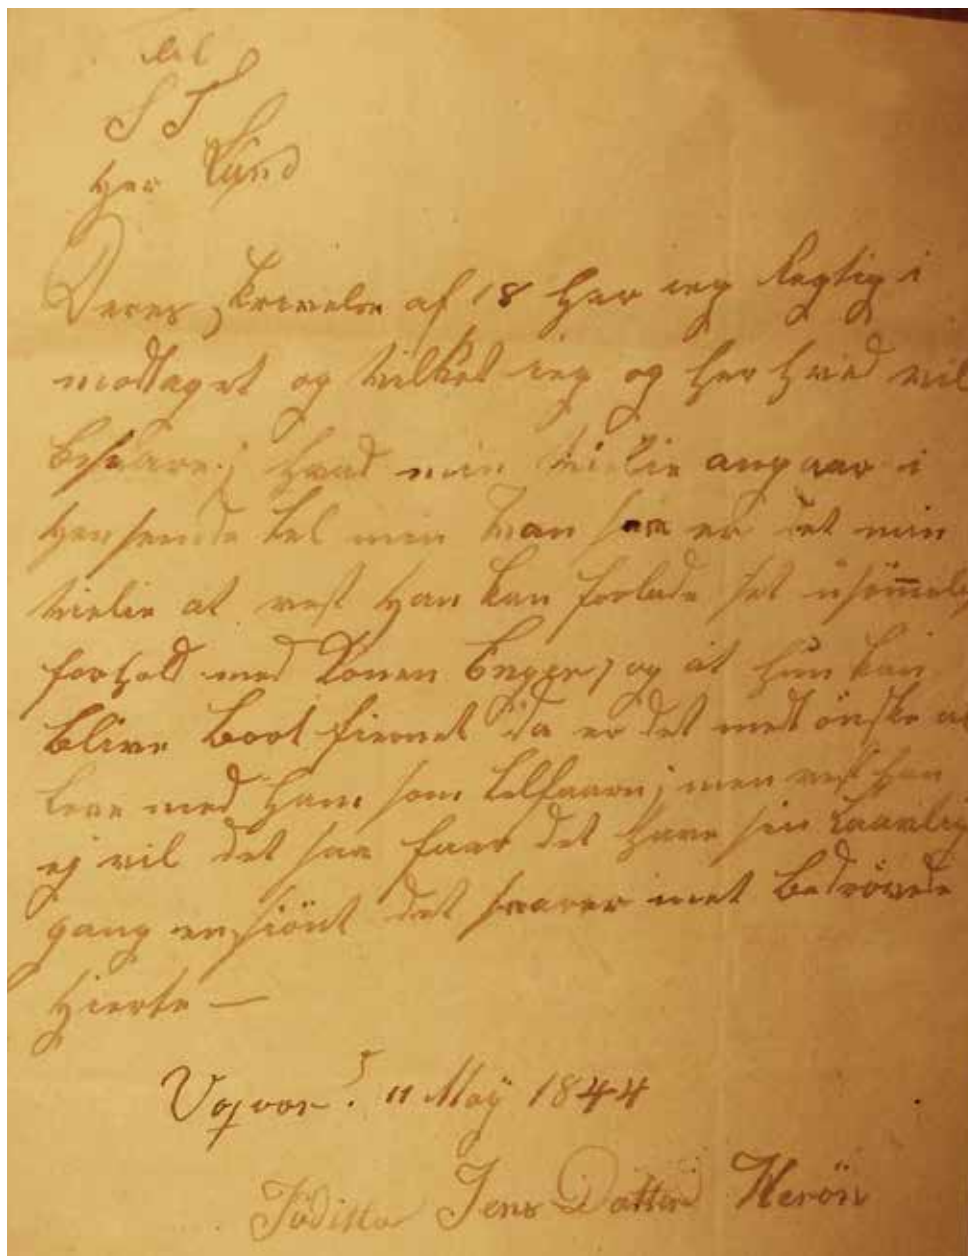 til
S T
Her Lund
Deres skrivelse af 18 Har ieg Regtig i
modtaget og vilket ieg og her hved vil
besvare; hvad min vielie angaar i
Hensende tel min Man saa er det min
vielie at vest Han kan forlade set usömmelig
forhold med Konen Enger, og at Hun kan
blive boort fiernet da er det met önske at
leve med Ham som telforn; men vest han
ej vil det saa faar det Have sin taarlig
gang ensiönt det svarer met bedrövede
Hierte —
11 Maÿ 1844
Jens Datter Herön